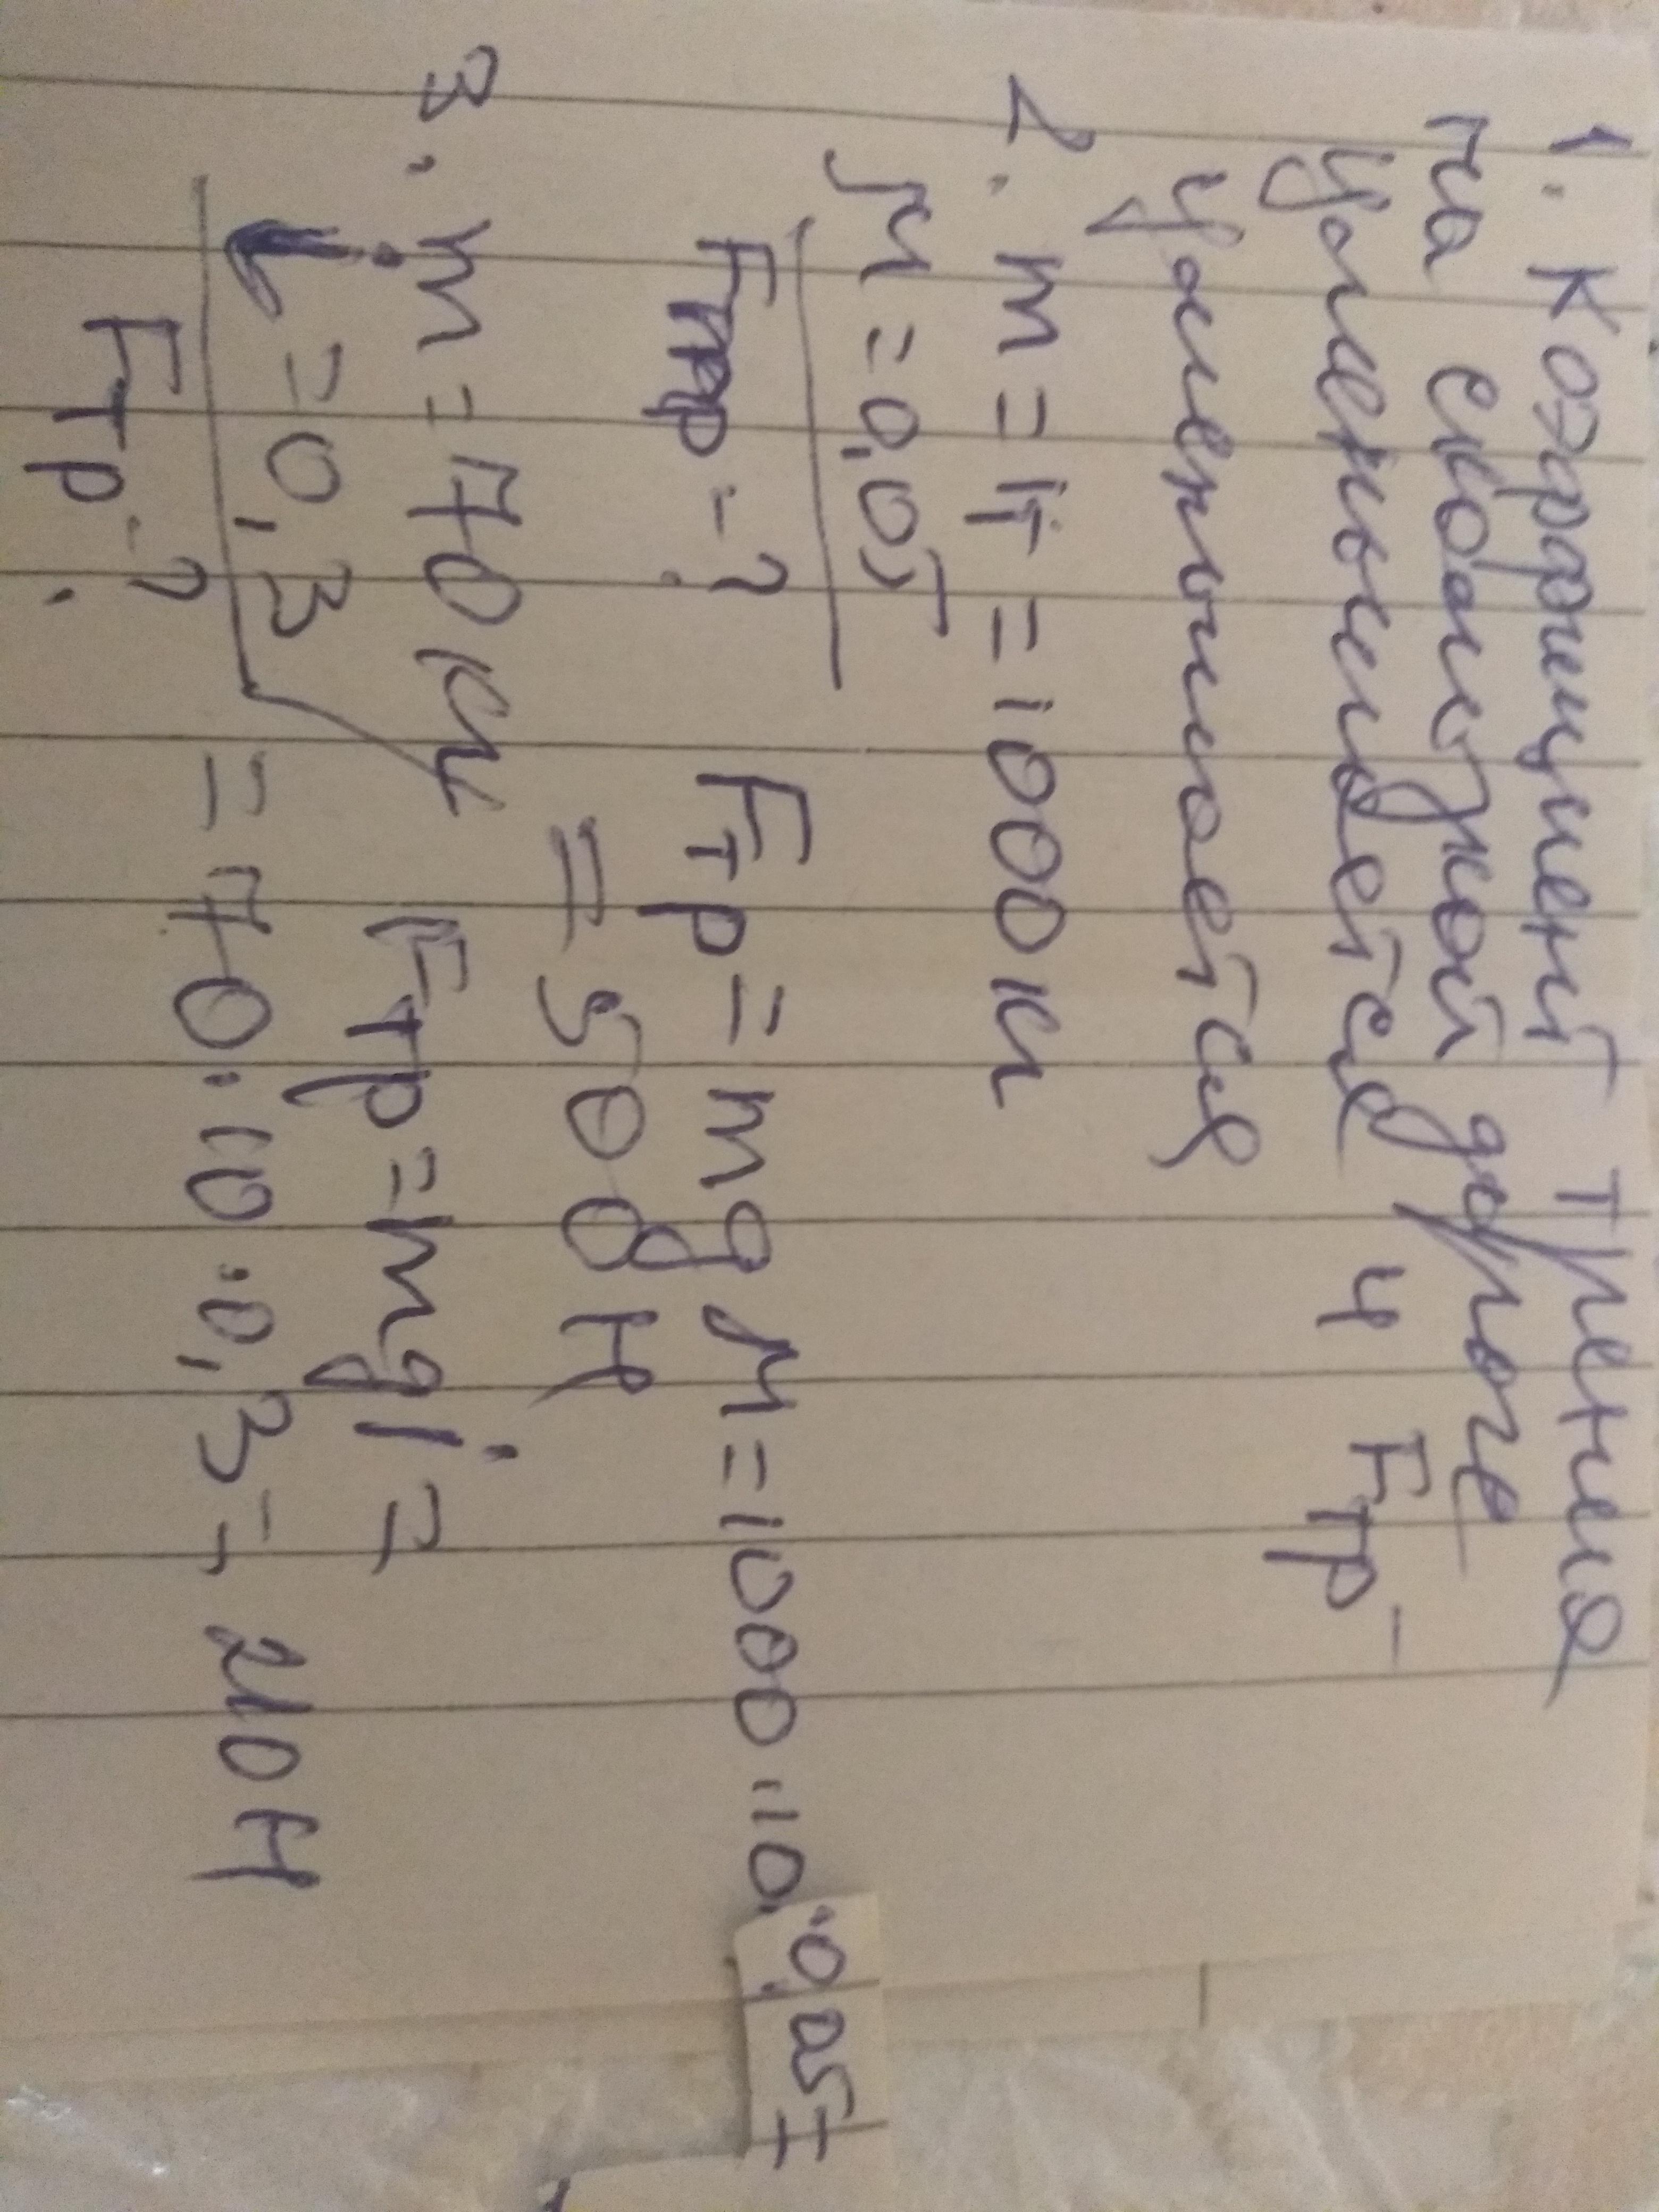 1. Коэффициент трения
на скользкой дороге
уменьшается и Fтр-
уменьшается
2. m = 1т = 1000 кг
μ = 0,05
Fтр - ? Fтр = mg μ = 1000·10·0,05=
= 500 Н
3. m = 70 кг
Fтр = mg i =
i = 0,3
= 70·10·0,3 = 210Н
Fтр - ?